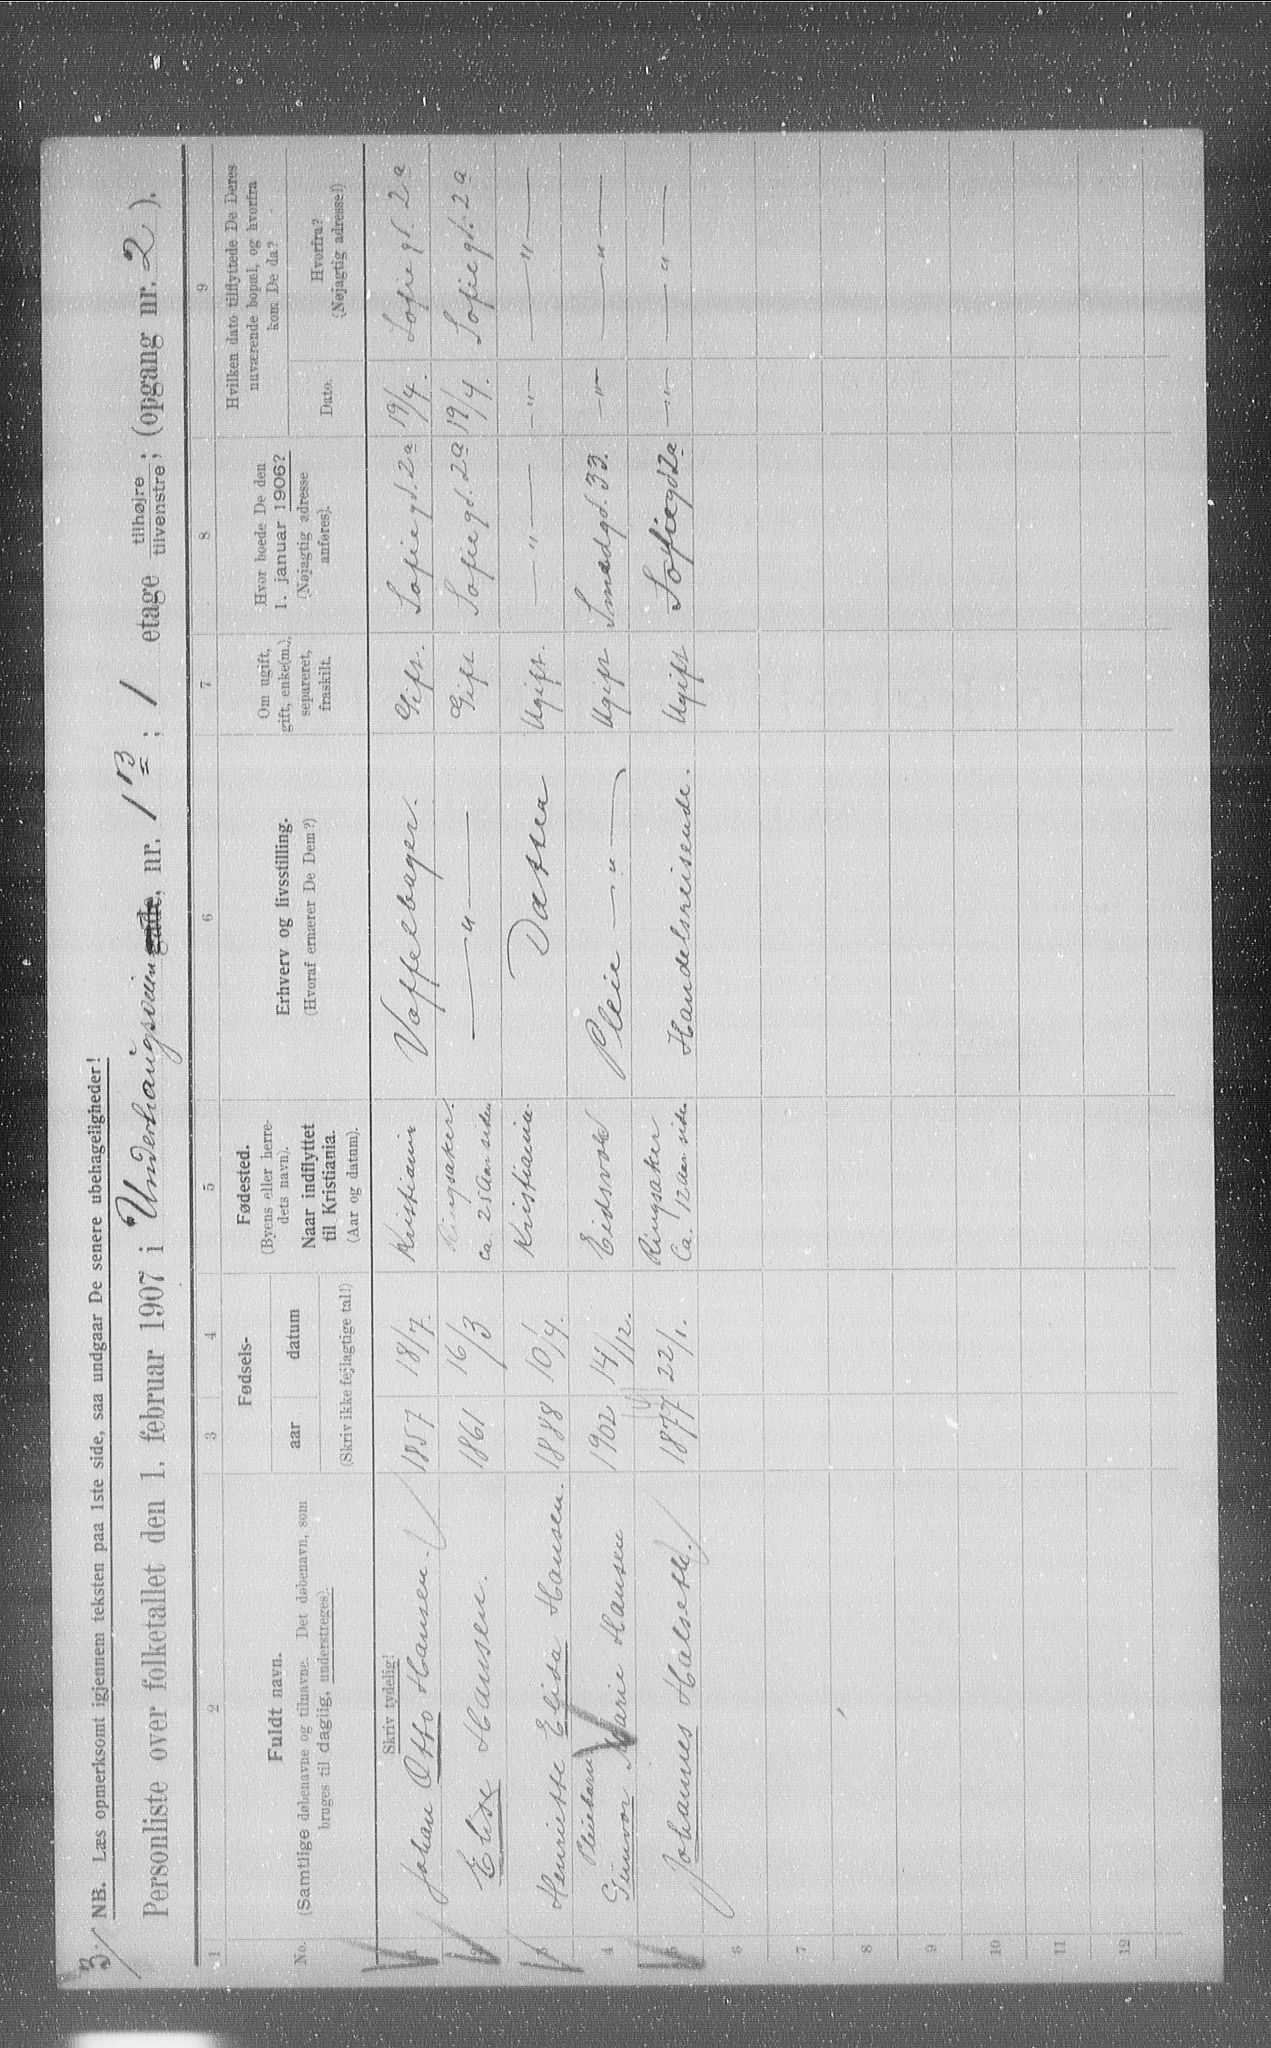 3/ NB. Læs opmerksomt igjennem teksten paa 1ste side, saa undgaar De senere ubehageligheder!
Personliste over folketallet den 1. februar 1907 i Underhaugsveien gade, nr. 1 B; 1 etage tilhøjre / tilvenstre; (opgang nr. 2).
1 2 3 4 5 6 7 8 9
No.
Fuldt navn.
(Samtlige døbenavne og tilnavne. Det døbenavn, som
bruges til daglig, understreges).
Fødsels-
aar datum
(Skriv ikke fejlagtige tal!)
Fødested.
(Byens eller herre-
dets navn).
Naar indflyttet
til Kristiania.
(Aar og datum).
Erhverv og livsstilling.
(Hvoraf ernærer De Dem?)
Om ugift,
gift, enke(m.),
separeret,
fraskilt.
Hvor boede De den
1. januar 1906?
(Nøjagtig adresse
anføres).
Hvilken dato tilflyttede De Deres
nuværende bopæl, og hvorfra
kom De da?
Dato.
Hvorfra?
(Nøjagtig adresse!)
Skriv tydelig!
1 Johan Otto Hansen. 1857 18/7. Kristiania Vaffelbager. Gift. Sofiegd. 2a 19/4. Sofiegd. 2a
2 Elise Hansen. 1861 16/3 Ringsaker. ca. 25 Aar siden — " — Gift Sofiegd. 2a 19/4. Sofiegd. 2a
3 Henriette Elisa Hansen. 1888 10/4. Kristiania. Datter Ugift. — " — — " — — " —
Pleiebarn
4 Gunvor Marie Hansen 1902 14/12. Eidsvold Pleie — " — Ugift Smedgd. 33. — " — — " —
5 Johannes Halseth. 1877 22/1. Ringsaker Ca. 12 aar siden Handelsreisende. Ugift Sofiegd 2a — " — — " —
6
7
8
9
10
11
12